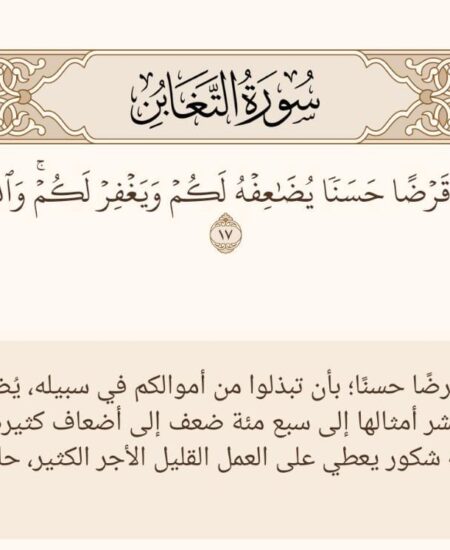 سُورَةُ التَّغَابُنِ
قَرۡضًا حَسَنٗا يُضَٰعِفۡهُ لَكُمۡ وَيَغۡفِرۡ لَكُمۡۚ
١٧
حسنًا؛ بأن تبذلوا من أموالكم في سبيله،
أمثالها إلى سبع مئة ضعف إلى أضعاف
شكور يعطي على العمل القليل الأجر الكثير،